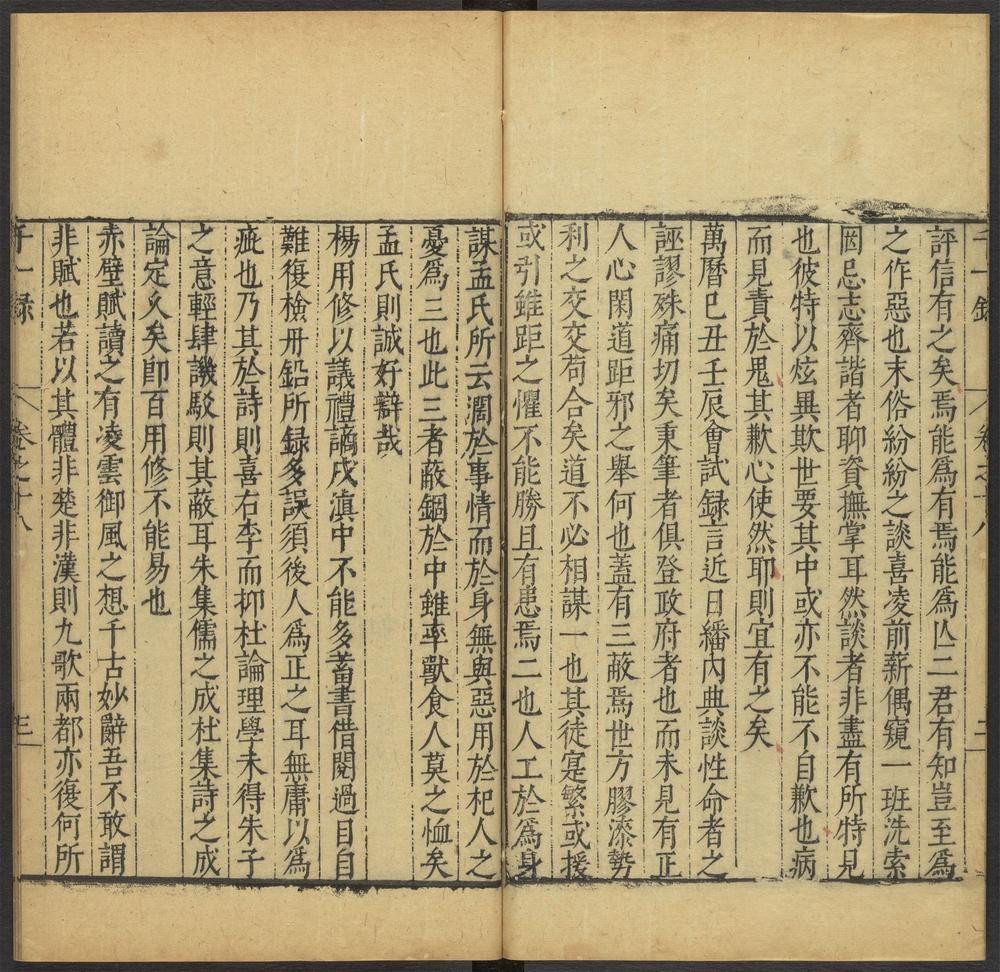 千一錄 卷之十八 二
評信有之矣焉能爲有焉能爲亾二君有知豈至爲
之作惡也末俗紛紛之談喜凌前薪偶窺一班洗索
囡忌志齊諧者聊資撫掌耳然談者非盡有所特見
也彼特以炫異欺世要其中或亦不能不自歉也病
而見責於鬼其歉心使然耶則宜有之矣
萬曆己丑壬辰會試録言近日繙內典談性命者之
誣謬殊痛切矣秉筆者俱登政府者也而未見有正
人心閑道距邪之舉何也蓋有三蔽焉世方膠漆勢
利之交交苟合矣道不必相謀一也其徒寔繁或援
或引雖距之懼不能勝且有患焉二也人工於爲身
謀孟氏所云濶於事情而於身無與惡用於杞人之
憂爲三也此三者蔽錮於中雖率獸食人莫之恤矣
孟氏則誠好辯哉
楊用修以議禮謫戍滇中不能多畜書借閱過目自
難復檢丹鉛所録多誤須後人爲正之耳無庸以爲
疵也乃其於詩則喜右李而抑杜論理學未得朱子
之意輕肆譏駁則其蔽耳朱集儒之成杜集詩之成
論定久矣卽百用修不能易也
赤壁賦讀之有凌雲御風之想千古妙辭吾不敢謂
非賦也若以其體非楚非漢則九歌兩都亦復何所
千一錄 卷之十八 三